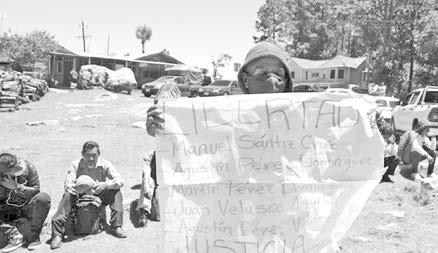 LIBERTAD
Manuel Sántiz Cruz
Agustín Pérez Domínguez
Martín Pérez Domínguez
Juan Velasco Aguilar
Agustín Pérez Velasco
JUSTICIA